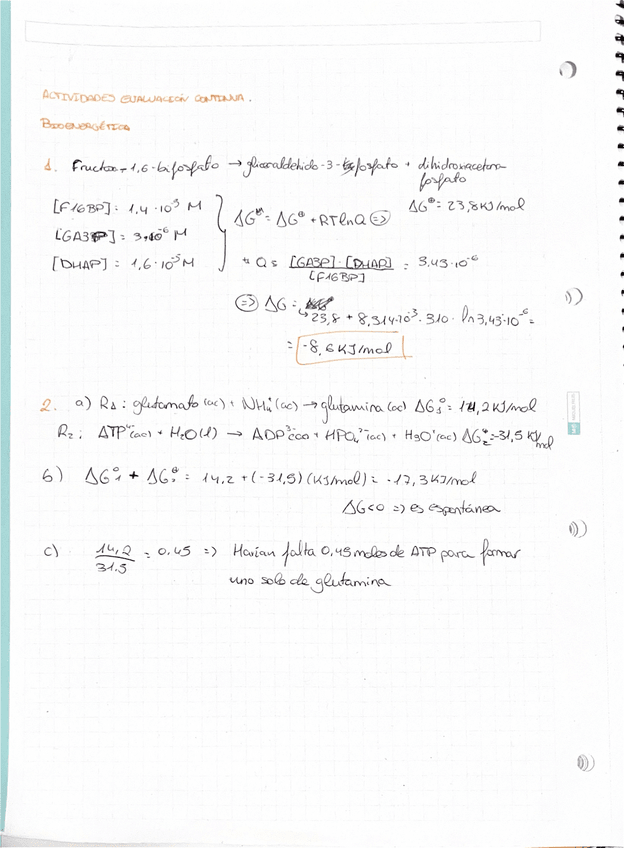 ACTIVIDADES EVALUACIÓN CONTINUA.
BIOENERGÉTICA
1. Fructosa-1,6-bifosfato → gliceraldehido-3-fosfato + dihidroxiacetona-
fosfato
[F16BP] = 1,4·10⁻⁵ M
ΔG° = 23,8 KJ/mol
ΔG = ΔG° + RTlnQ ⇒
[GA3P] = 3·10⁻⁶ M
[DHAP] = 1,6·10⁻⁵ M
* Q = [GA3P]·[DHAP] / [F16BP] = 3,43·10⁻⁶
⇒ ΔG =
↳ 23,8 + 8,314·10⁻³·310· ln 3,43·10⁻⁶ =
= -8,6 KJ/mol
2. a) R₁: glutamato (ac) + NH₄⁺ (ac) → glutamina (ac) ΔG₁° = 14,2 KJ/mol
R₂: ATP⁴⁻(ac) + H₂O(l) → ADP³⁻(ac) + HPO₄²⁻(ac) + H₃O⁺(ac) ΔG₂° = -31,5 KJ/mol
b) ΔG₁° + ΔG₂° = 14,2 + (-31,5) (KJ/mol) = -17,3 KJ/mol
ΔG<0 => es espontánea
c) 14,2 / 31,5 = 0,45 => Harían falta 0,45 moles de ATP para formar
uno solo de glutamina